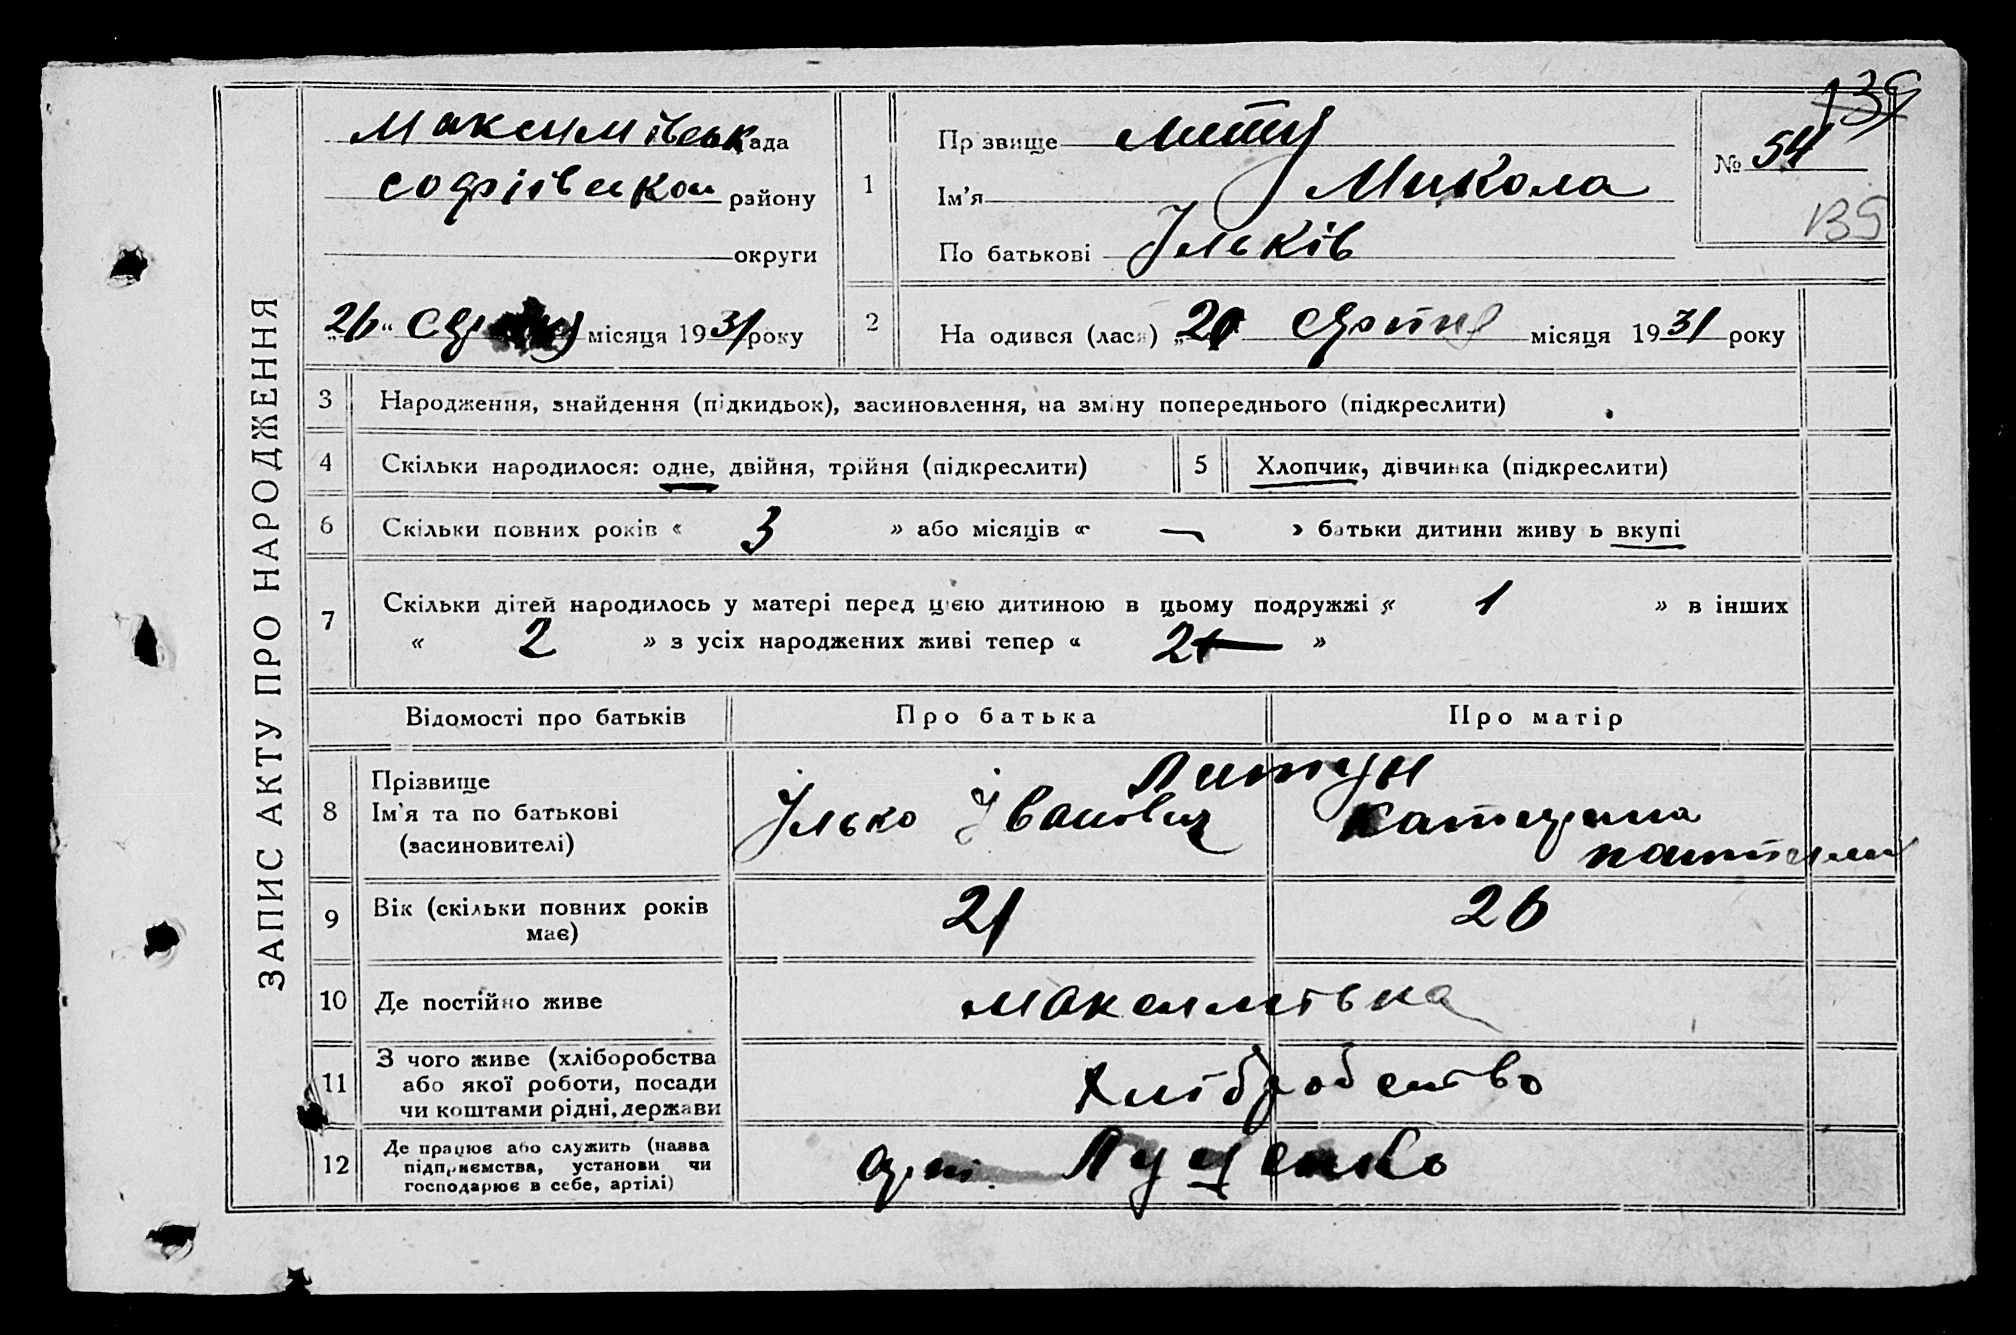 ЗАПИС АКТУ ПРО НАРОДЖЕННЯ
139
Максимівськ ада
Софіївськ району
округи
„26“ місяця 1931 року
1
Пр звище
Ім'я Микола
По батькові Ільків
№ 54
139
2
На одився (лася) „ серпня місяця 1931 року
3 Народження, знайдення (підкидьок), засиновлення, на зміну попереднього (підкреслити)
4 Скільки народилося: одне, двійня, трійня (підкреслити)
5 Хлопчик, дівчинка (підкреслити)
6 Скільки повних років « 3 » або місяців « — » батьки дитини живу ь вкупі
7 Скільки дітей народилось у матері перед цією дитиною в цьому подружжі « 1 » в інших
« 2 » з усіх народжених живі тепер « 2 »
Відомості про батьків
Про батька
Про матір
8
Прізвище
Ім'я та по батькові
(засиновителі)
Литун
Ілько Іванович
Катерина
9
Вік (скільки повних років
має)
21
26
10 Де постійно живе
Максимівка
11
З чого живе (хліборобства
або якої роботи, посади
чи коштами рідні, держави
Хлібробство
12
Де працює або служить (назва
підприємства, установи чи
господарює в себе, артілі)
Луценко